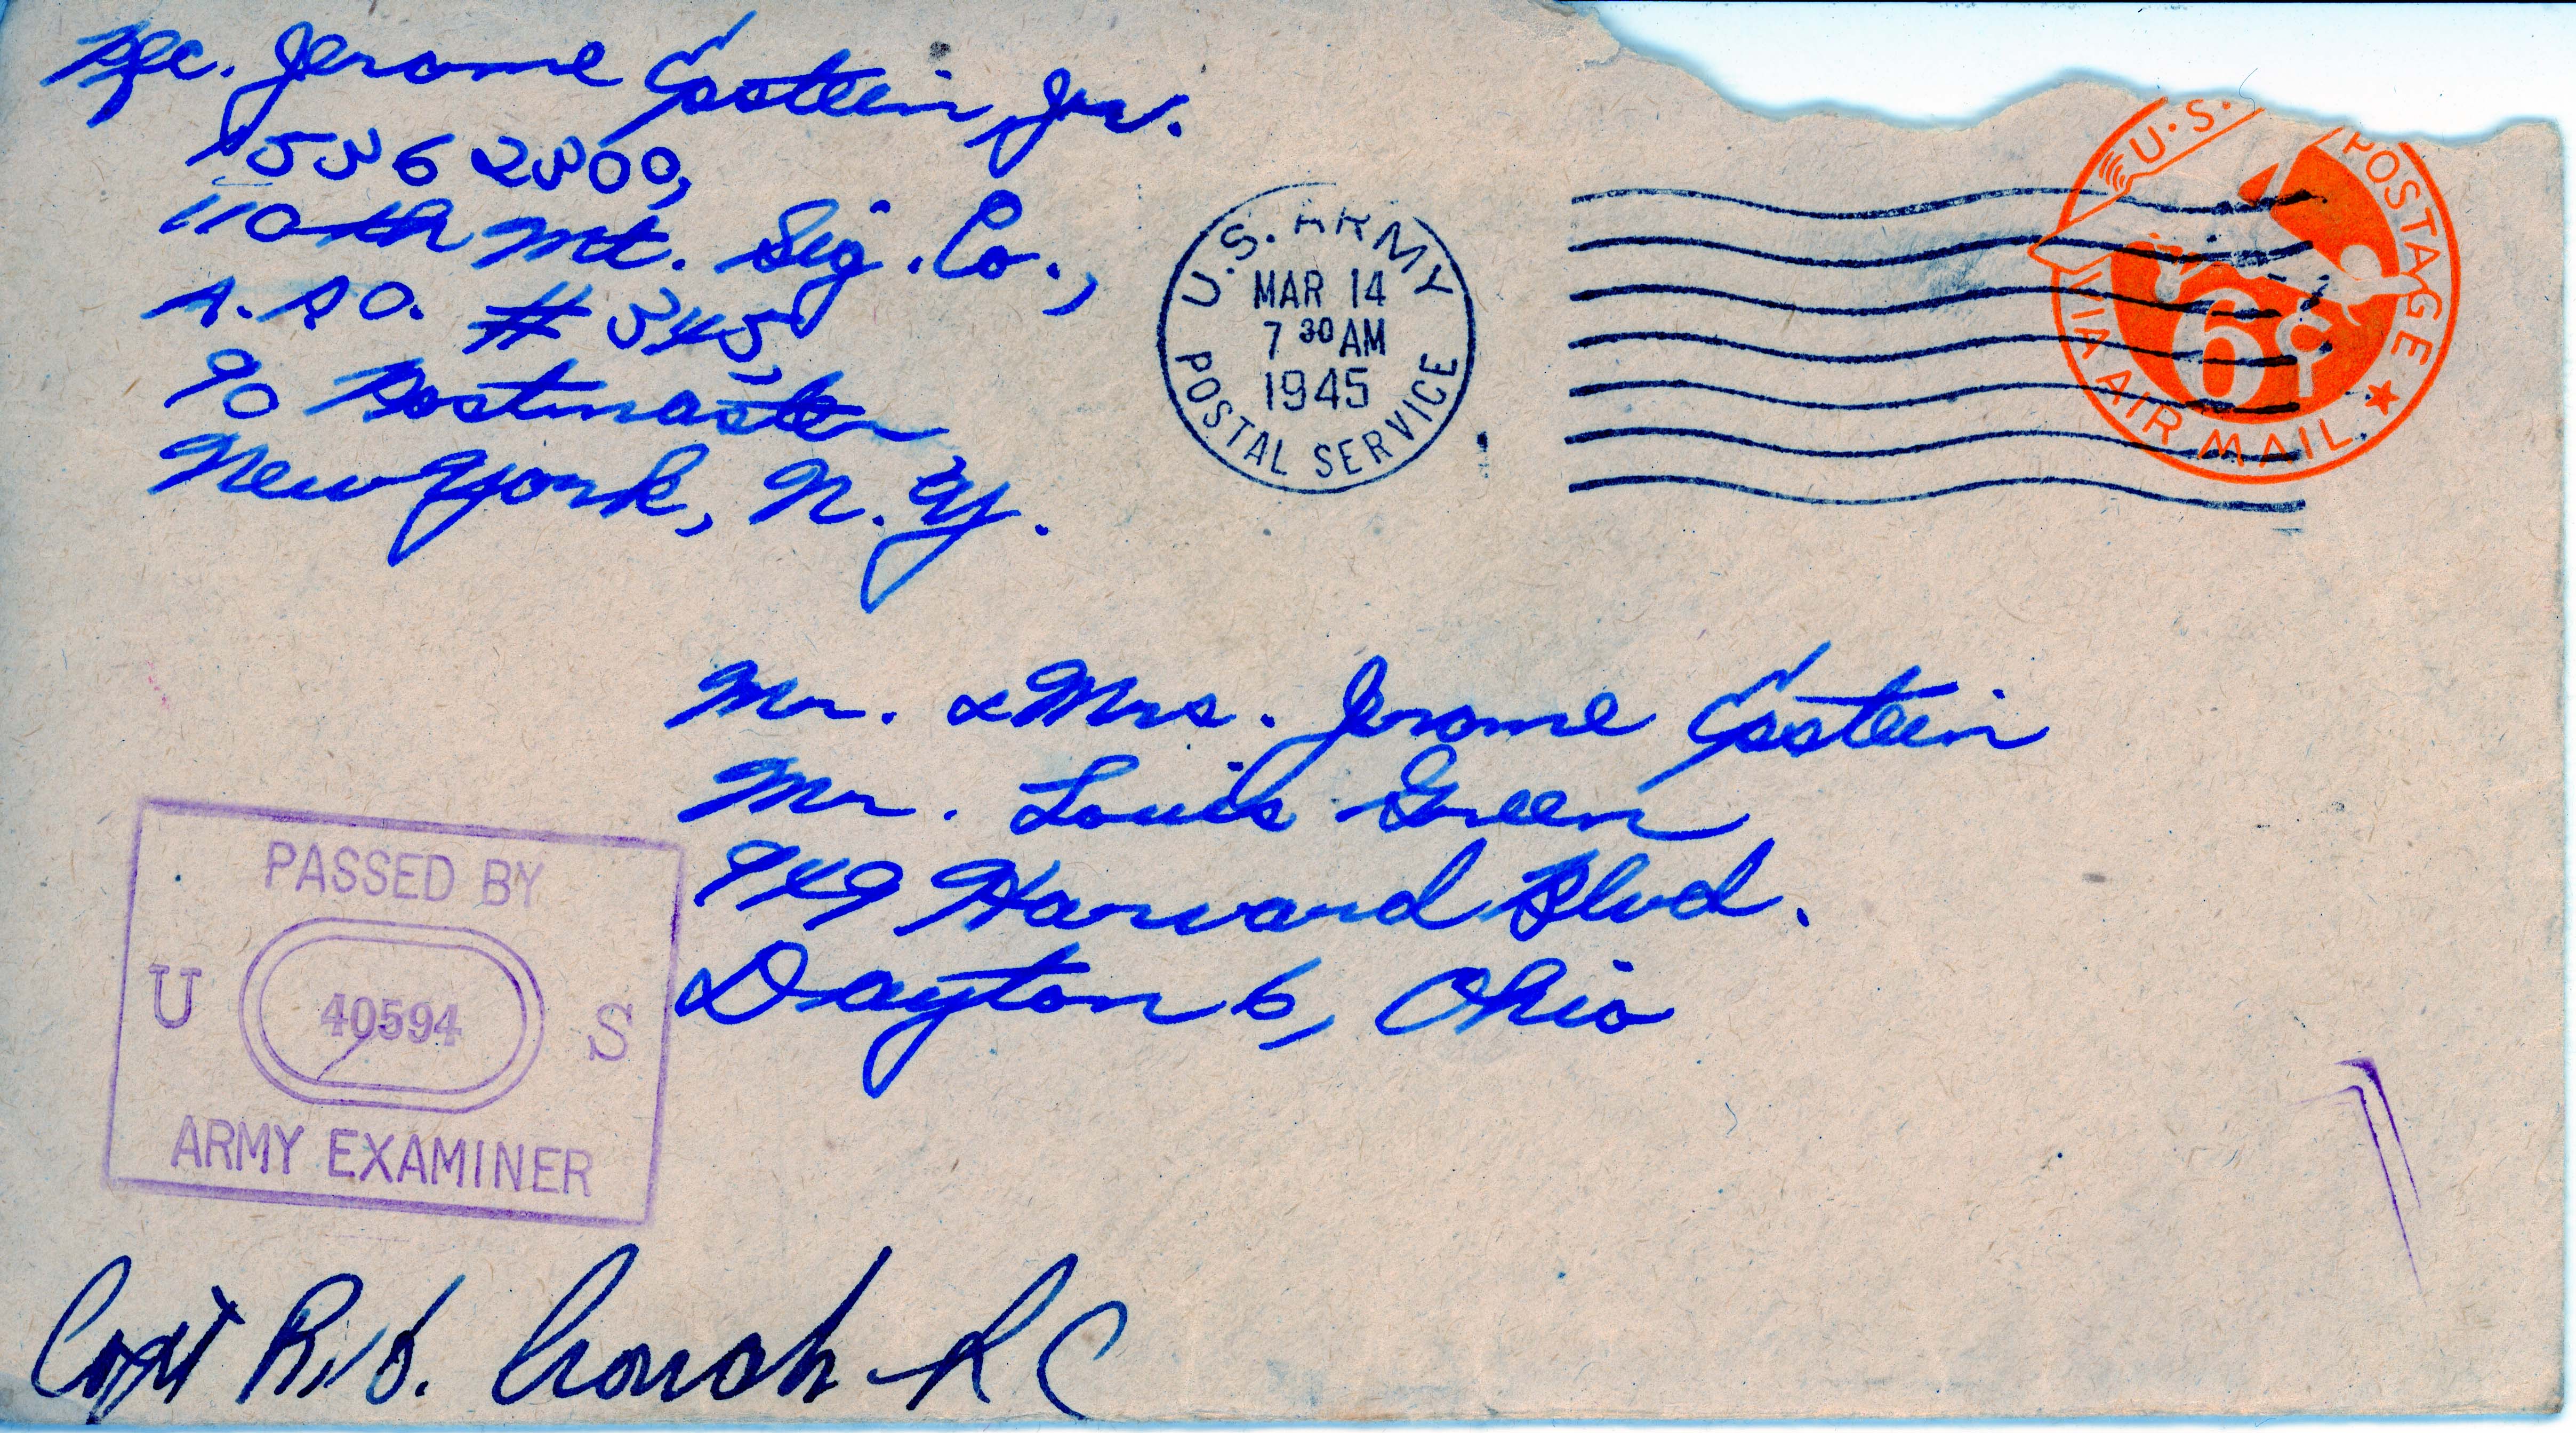 Pfc. Jerome Epstein, Jr.
15362300,
110th Mt. Sig. Co.,
A.P.O. #345,
c/o Postmaster
New York, N.Y.
U.S. ARMY
MAR 14
7 30 AM
1945
POSTAL SERVICE
U.S. POSTAGE
6¢
VIA AIR MAIL
Mr. & Mrs. Jerome Epstein
Mr. Louis Green
949 Harvard Blvd.
Dayton 6, Ohio
PASSED BY
U 40594 S
ARMY EXAMINER
Capt